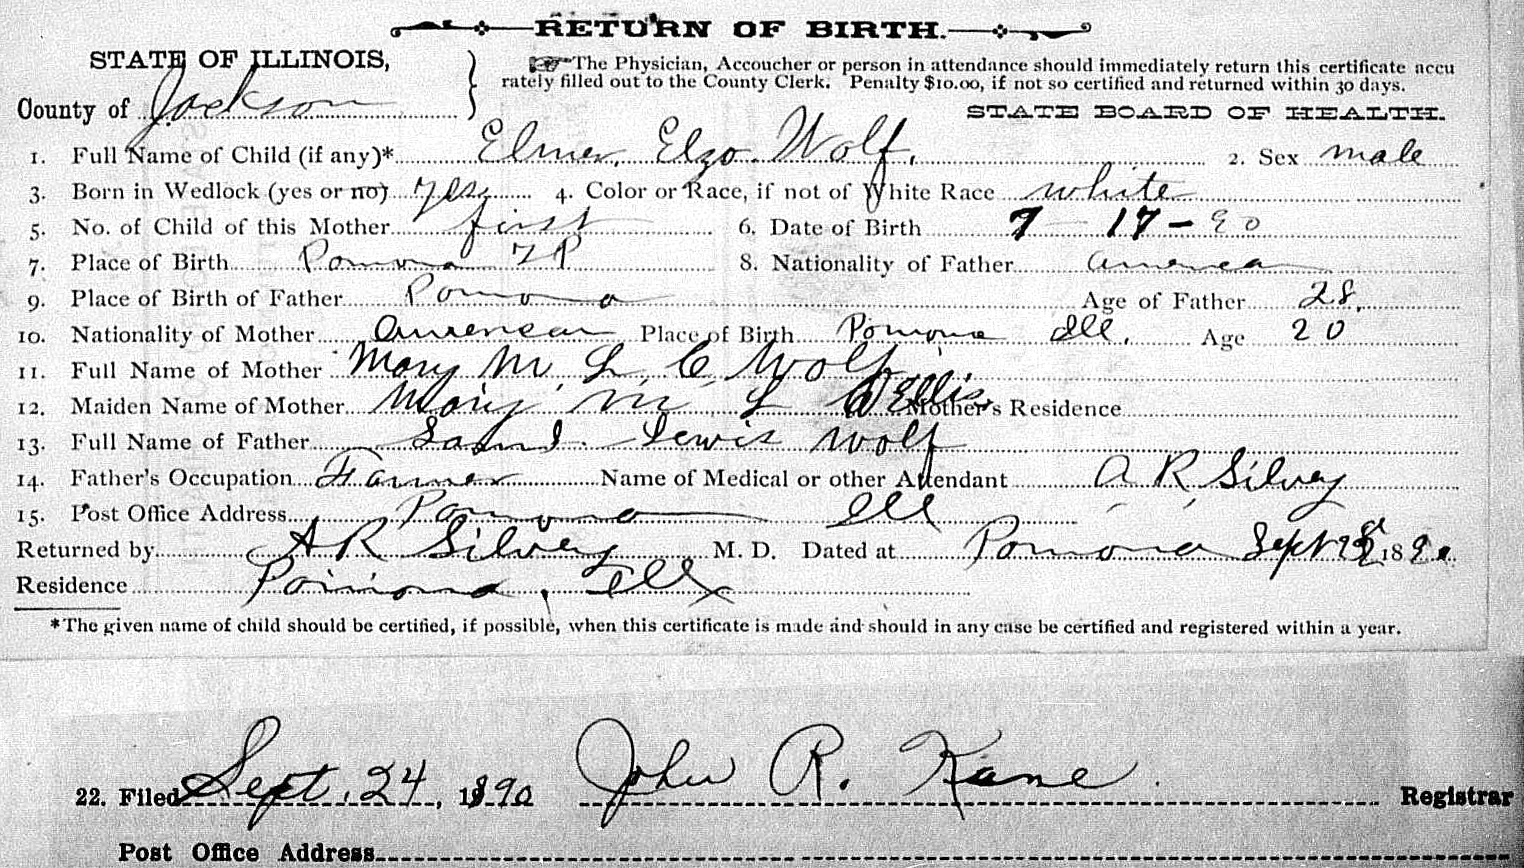 RETURN OF BIRTH.
STATE OF ILLINOIS,
County of Jackson
The Physician, Accoucher or person in attendance should immediately return this certificate accu
rately filled out to the County Clerk. Penalty $10.00, if not so certified and returned within 30 days.
STATE BOARD OF HEALTH.
1. Full Name of Child (if any)* Elmer Elzo Wolf. 2. Sex male
3. Born in Wedlock (yes or no) yes 4. Color or Race, if not of White Race white
5. No. of Child of this Mother first 6. Date of Birth 9-17-90
7. Place of Birth Pomona TP 8. Nationality of Father America
9. Place of Birth of Father Pomona Age of Father 28.
10. Nationality of Mother American Place of Birth Pomona Ill. Age 20
11. Full Name of Mother Mary M. L. C. Wolf
12. Maiden Name of Mother Mary M L Ellis Mother's Residence
13. Full Name of Father Saml. Lewis Wolf
14. Father's Occupation Farmer Name of Medical or other Attendant A R Silvey
15. Post Office Address Pomona Ill
Returned by A R Silvey M. D. Dated at Pomona Sept 1890
Residence Pomona, Ills
*The given name of child should be certified, if possible, when this certificate is made and should in any case be certified and registered within a year.
22. Filed Sept. 24, 1890 John R. Kane Registrar
Post Office Address